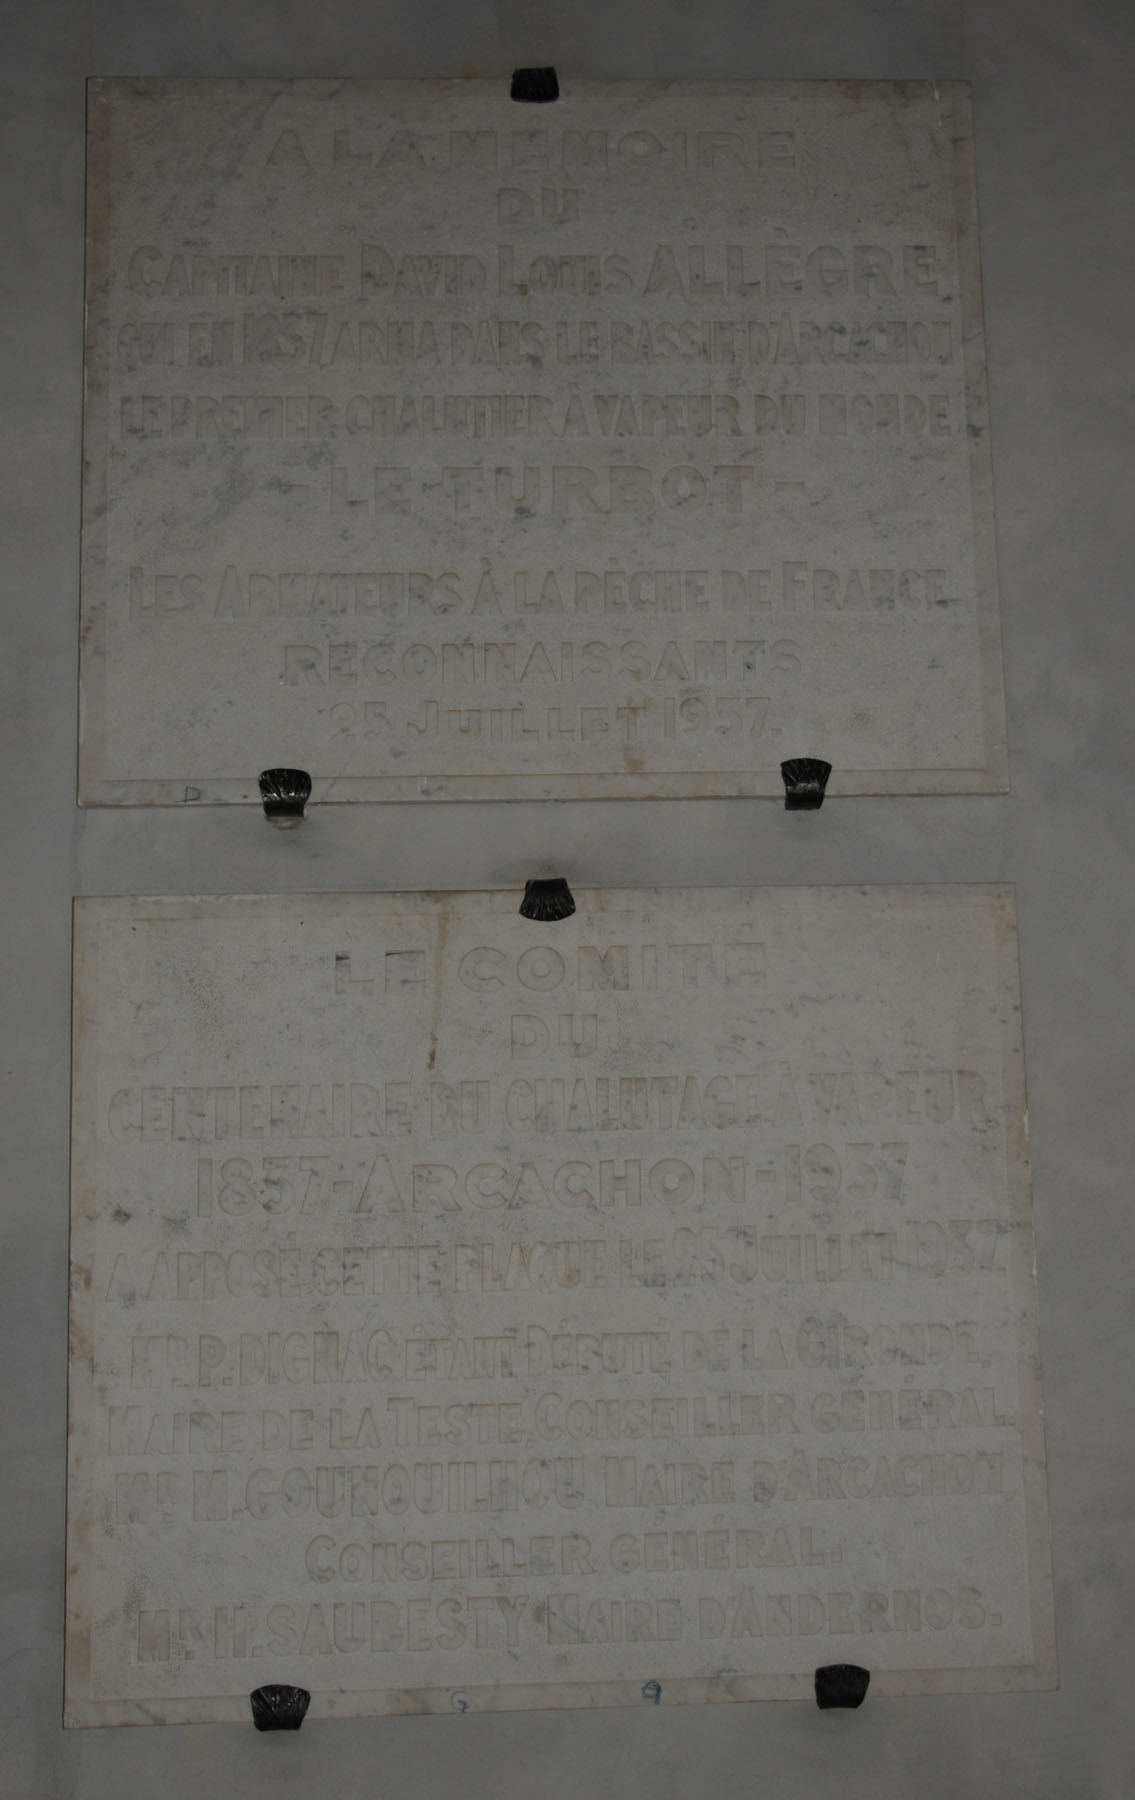 A LA MEMOIRE
DU
CAPITAINE DAVID LOUIS ALLÈGRE
QUI EN 1837 ARMA DANS LE BASSIN D'ARCACHON
LE PREMIER CHALUTIER À VAPEUR DU MONDE
- LE TURBOT -
LES ARMATEURS À LA PÈCHE DE FRANCE
RECONNAISSANTS
25 JUILLET 1937.
LE COMITÉ
DU
CENTENAIRE DU CHALUTAGE À VAPEUR
1837-ARCACHON-1937
A APPOSÉ CETTE PLAQUE LE 25 JUILLET 1937.
MR. P. DIGNAC ÉTANT DÉPUTÉ DE LA GIRONDE,
MAIRE DE LA TESTE, CONSEILLER GÉNÉRAL.
MR. M. GOUNOUILHOU, MAIRE D'ARCACHON,
CONSEILLER GÉNÉRAL.
MR. H. SAUBESTY MAIRE D'ANDERNOS.